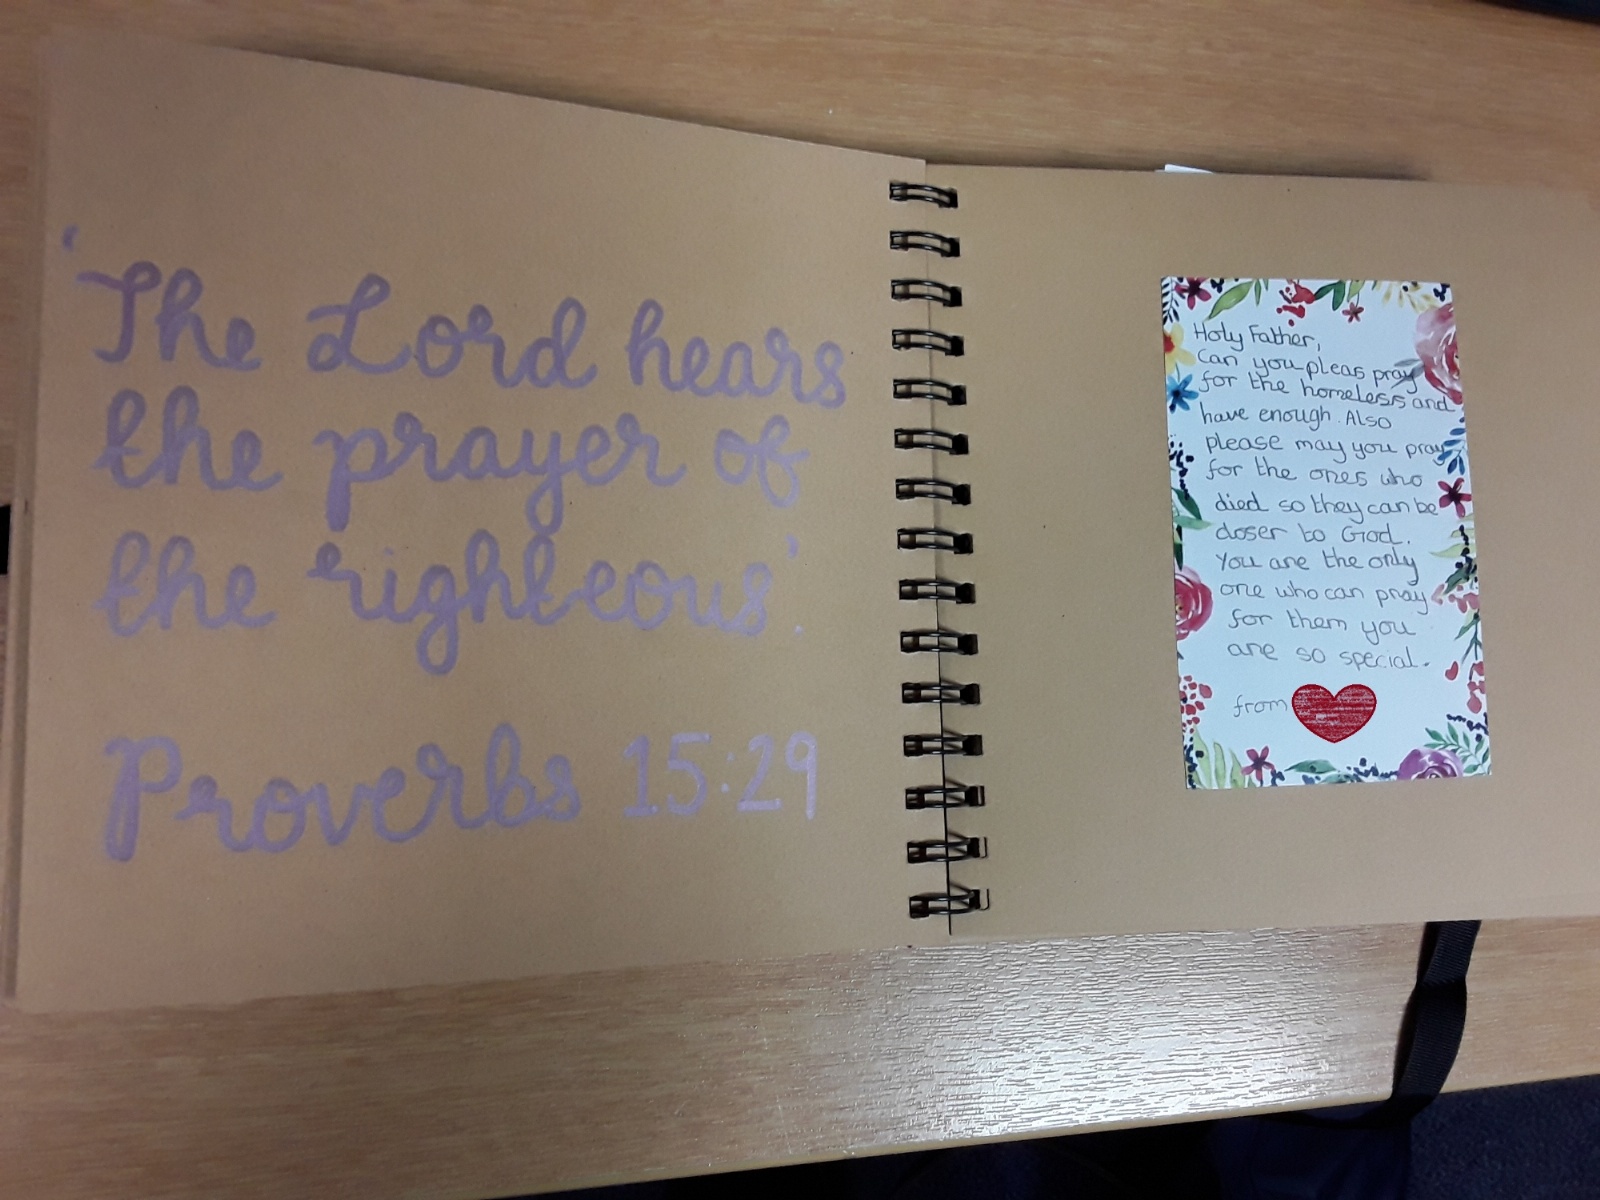 'The Lord hears
the prayer of
the righteous'.
Proverbs 15:29
Holy Father,
can you pleas pray
for the homeless and
have enough. Also
please may you pray
for the ones who
died so they can be
closer to God.
You are the only
one who can pray
for them you
are so special.
from